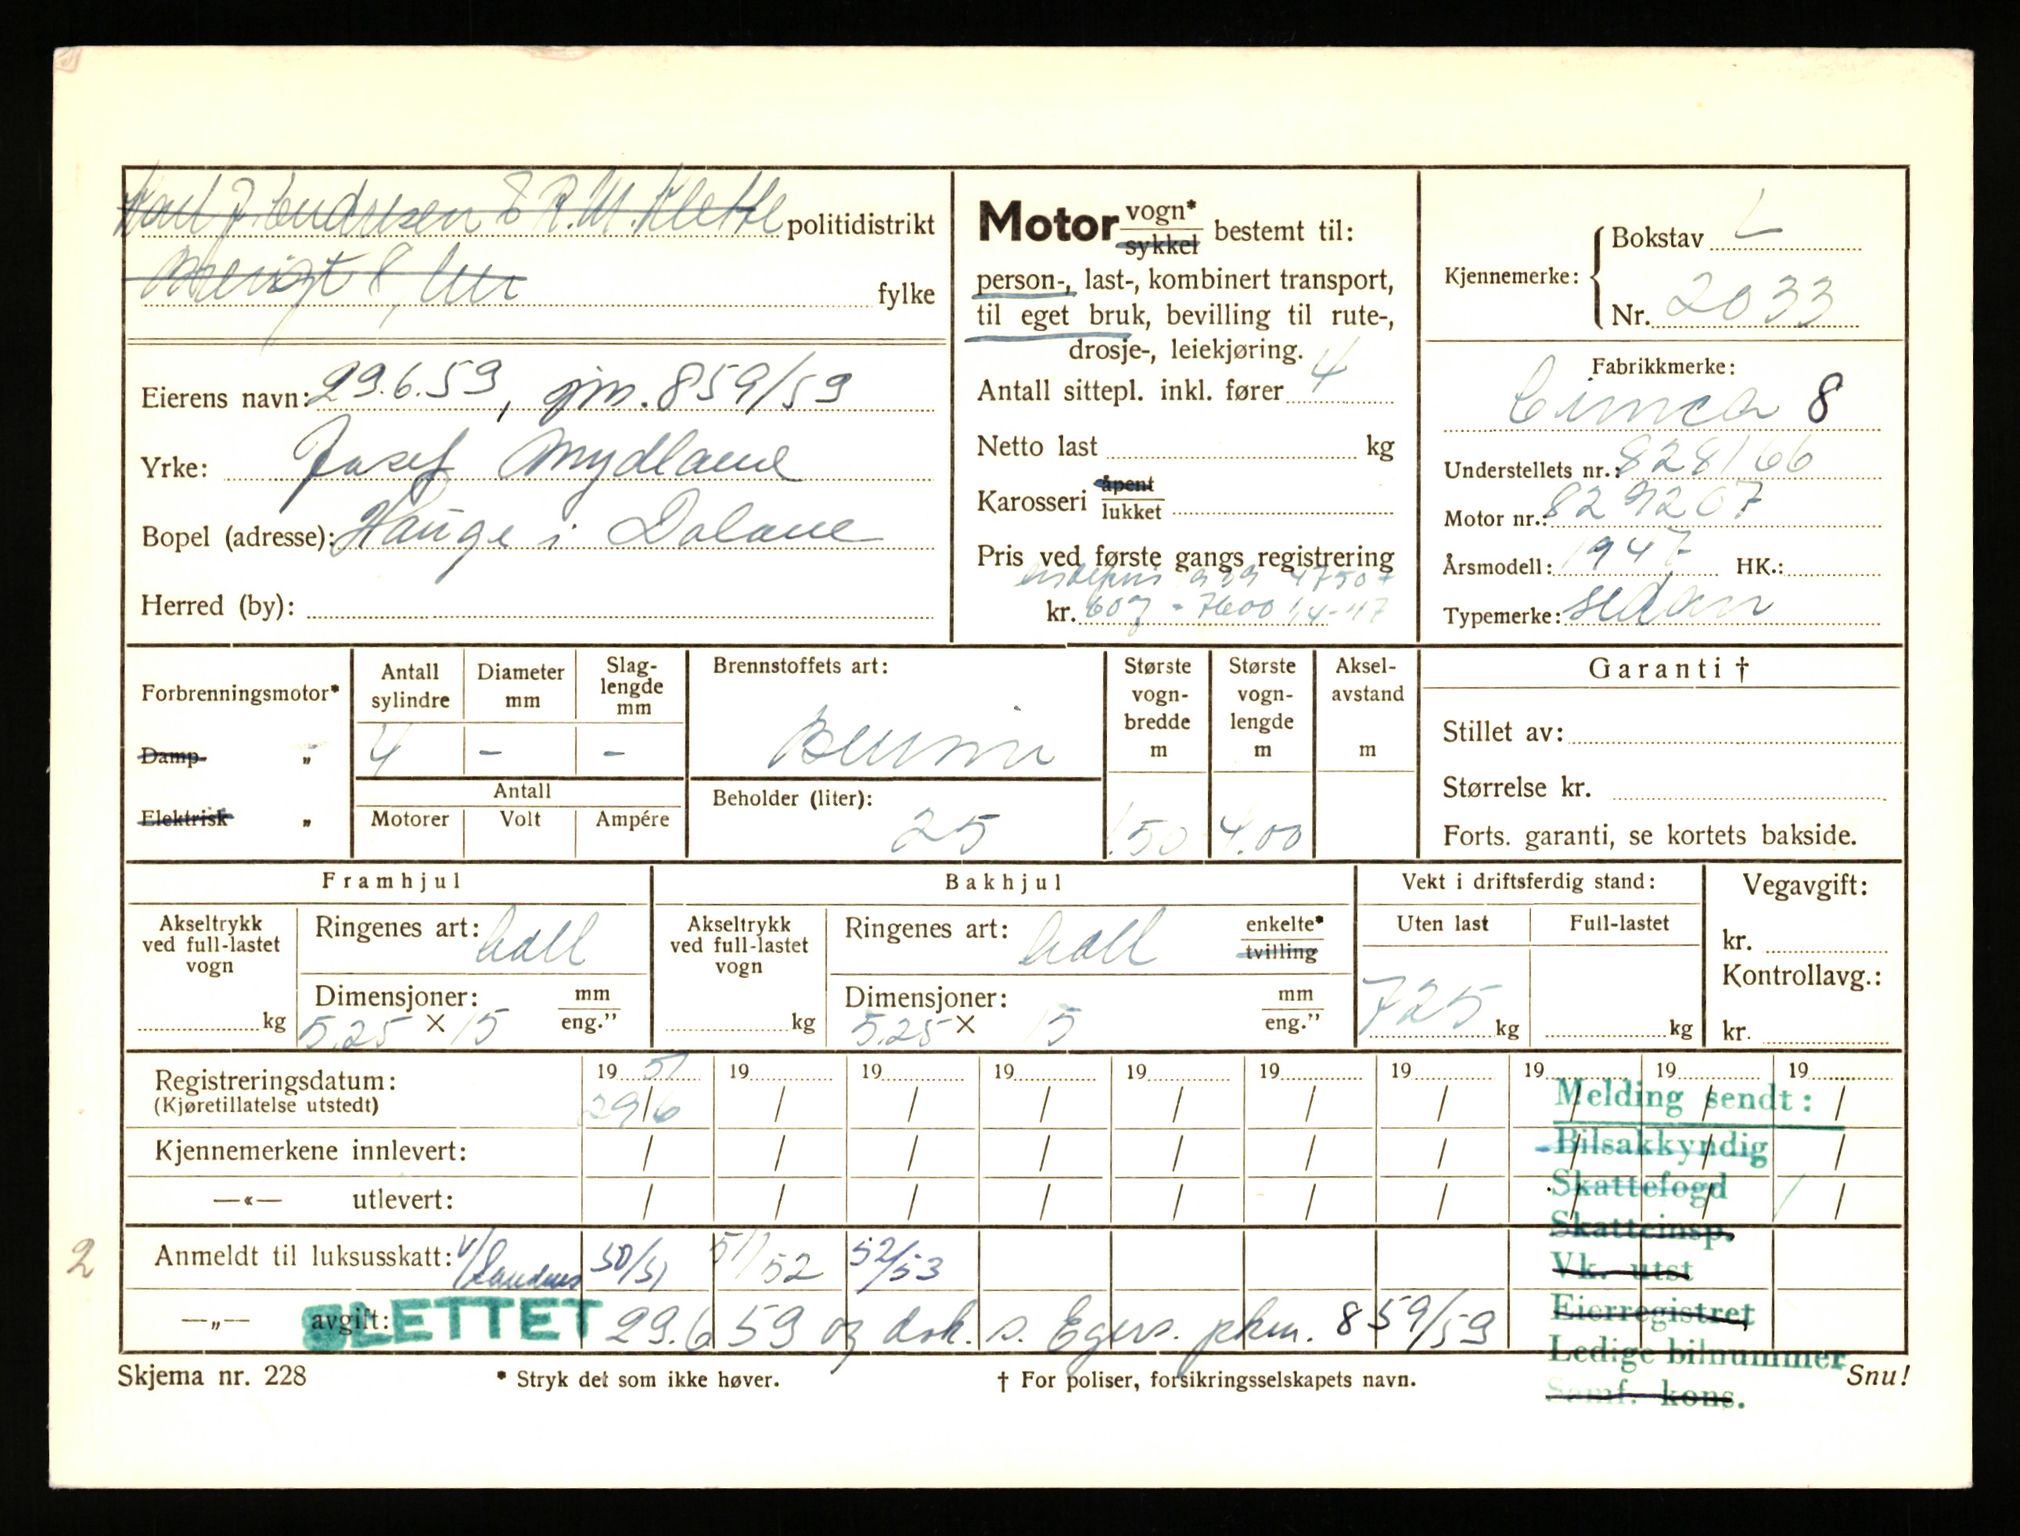 Karl J. Endresen & R. M. Klette politidistrikt
fylke
Eierens navn: 29.6.59, gjm. 859/59
Yrke: Josef Mydland
Bopel (adresse): Hauge i Dalane
Herred (by):
Motor vogn* sykkel bestemt til:
person-, last-, kombinert transport,
til eget bruk, bevilling til rute-,
drosje-, leiekjøring.
Antall sittepl. inkl. fører 4
Netto last kg
Karosseri åpent lukket
Pris ved første gangs registrering
1939 4750
kr. 607 - 7600 1/4-47
Kjennemerke: Bokstav L
Nr. 2033
Fabrikkmerke:
Simca 8
Understellets nr.: 828166
Motor nr.: 829207
Årsmodell: 1947 HK.:
Typemerke: sedan
Forbrenningsmotor*
Damp- „
Elektrisk „
Antall sylindre
Diameter mm
Slag-lengde mm
4 - -
Antall
Motorer Volt Ampére
Brennstoffets art:
Bensin
Beholder (liter):
25
Største vogn-bredde m
1.50
Største vogn-lengde m
4.00
Aksel-avstand m
Garanti †
Stillet av:
Størrelse kr.
Forts. garanti, se kortets bakside.
Framhjul
Akseltrykk ved full-lastet vogn
kg
Ringenes art: ball
Dimensjoner: mm eng."
5.25 × 15
Bakhjul
Akseltrykk ved full-lastet vogn
kg
Ringenes art: ball enkelte* tvilling
Dimensjoner: mm eng."
5.25 × 15
Vekt i driftsferdig stand:
Uten last Full-lastet
725 kg kg
Vegavgift:
kr.
Kontrollavg.:
kr.
Registreringsdatum: 19 51 19 19 19 19 19 19 19 19 19
(Kjøretillatelse utstedt) 29/6 / / / / / / / / /
Kjennemerkene innlevert: / / / / / / / / / /
—«— utlevert: / / / / / / / / / /
2
Anmeldt til luksusskatt: 50/51 51/52 52/53
—„— avgift:
SLETTET 29.6 59 og dok. s. Egers. pkm. 859/59
Melding sendt:
Bilsakkyndig
Skattefogd
Skatteinsp.
Vk. utst
Eierregistret
Ledige bilnummer
Samf. kons.
Skjema nr. 228
* Stryk det som ikke høver.
† For poliser, forsikringsselskapets navn.
Snu!